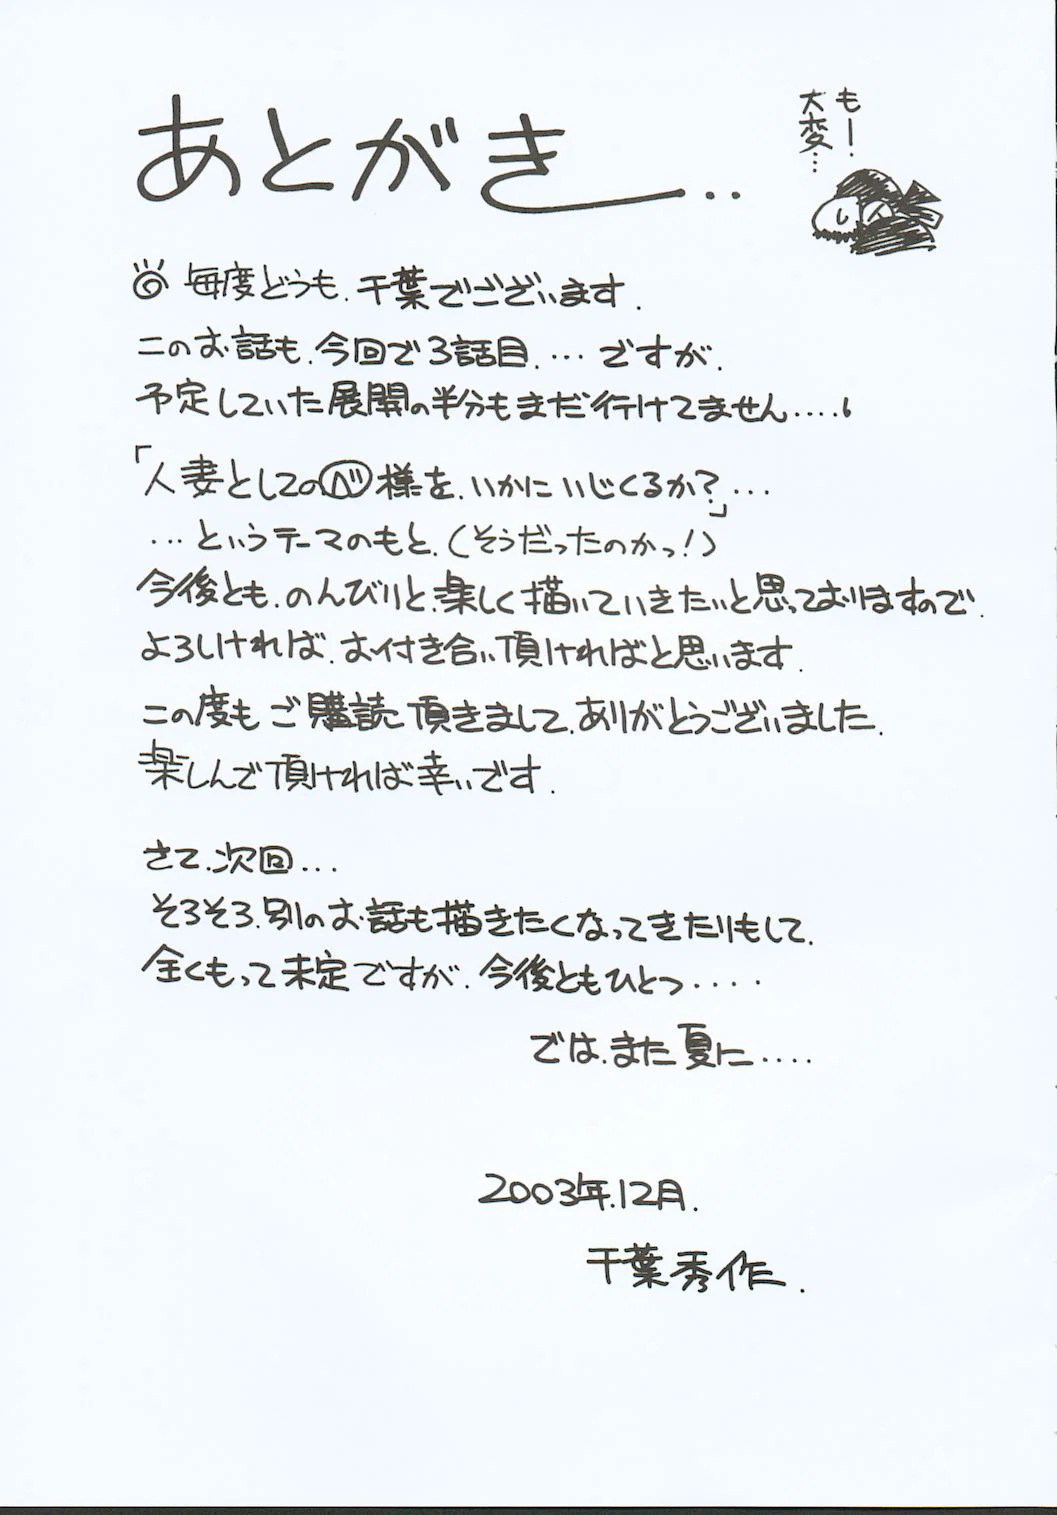 あとがき..
もー!
大変…
◎ 毎度どうも.千葉でございます.
このお話も.今回で3話目.…ですが.
予定していた展開の半分もまだ行けてません....
「人妻としてのべ様を.いかにいじくるか?…」
…というテーマのもと.(そうだったのかっ!)
今後とも.のんびりと.楽しく描いていきたいと思っておりますので.
よろしければ.お付き合い頂ければと思います.
この度もご購読頂きまして.ありがとうございました.
楽しんで頂ければ幸いです.
さて.次回...
そろそろ.別のお話も描きたくなってきたりもして.
全くもって未定ですが.今後ともひとつ....
では.また夏に....
2003年.12月.
千葉秀作.